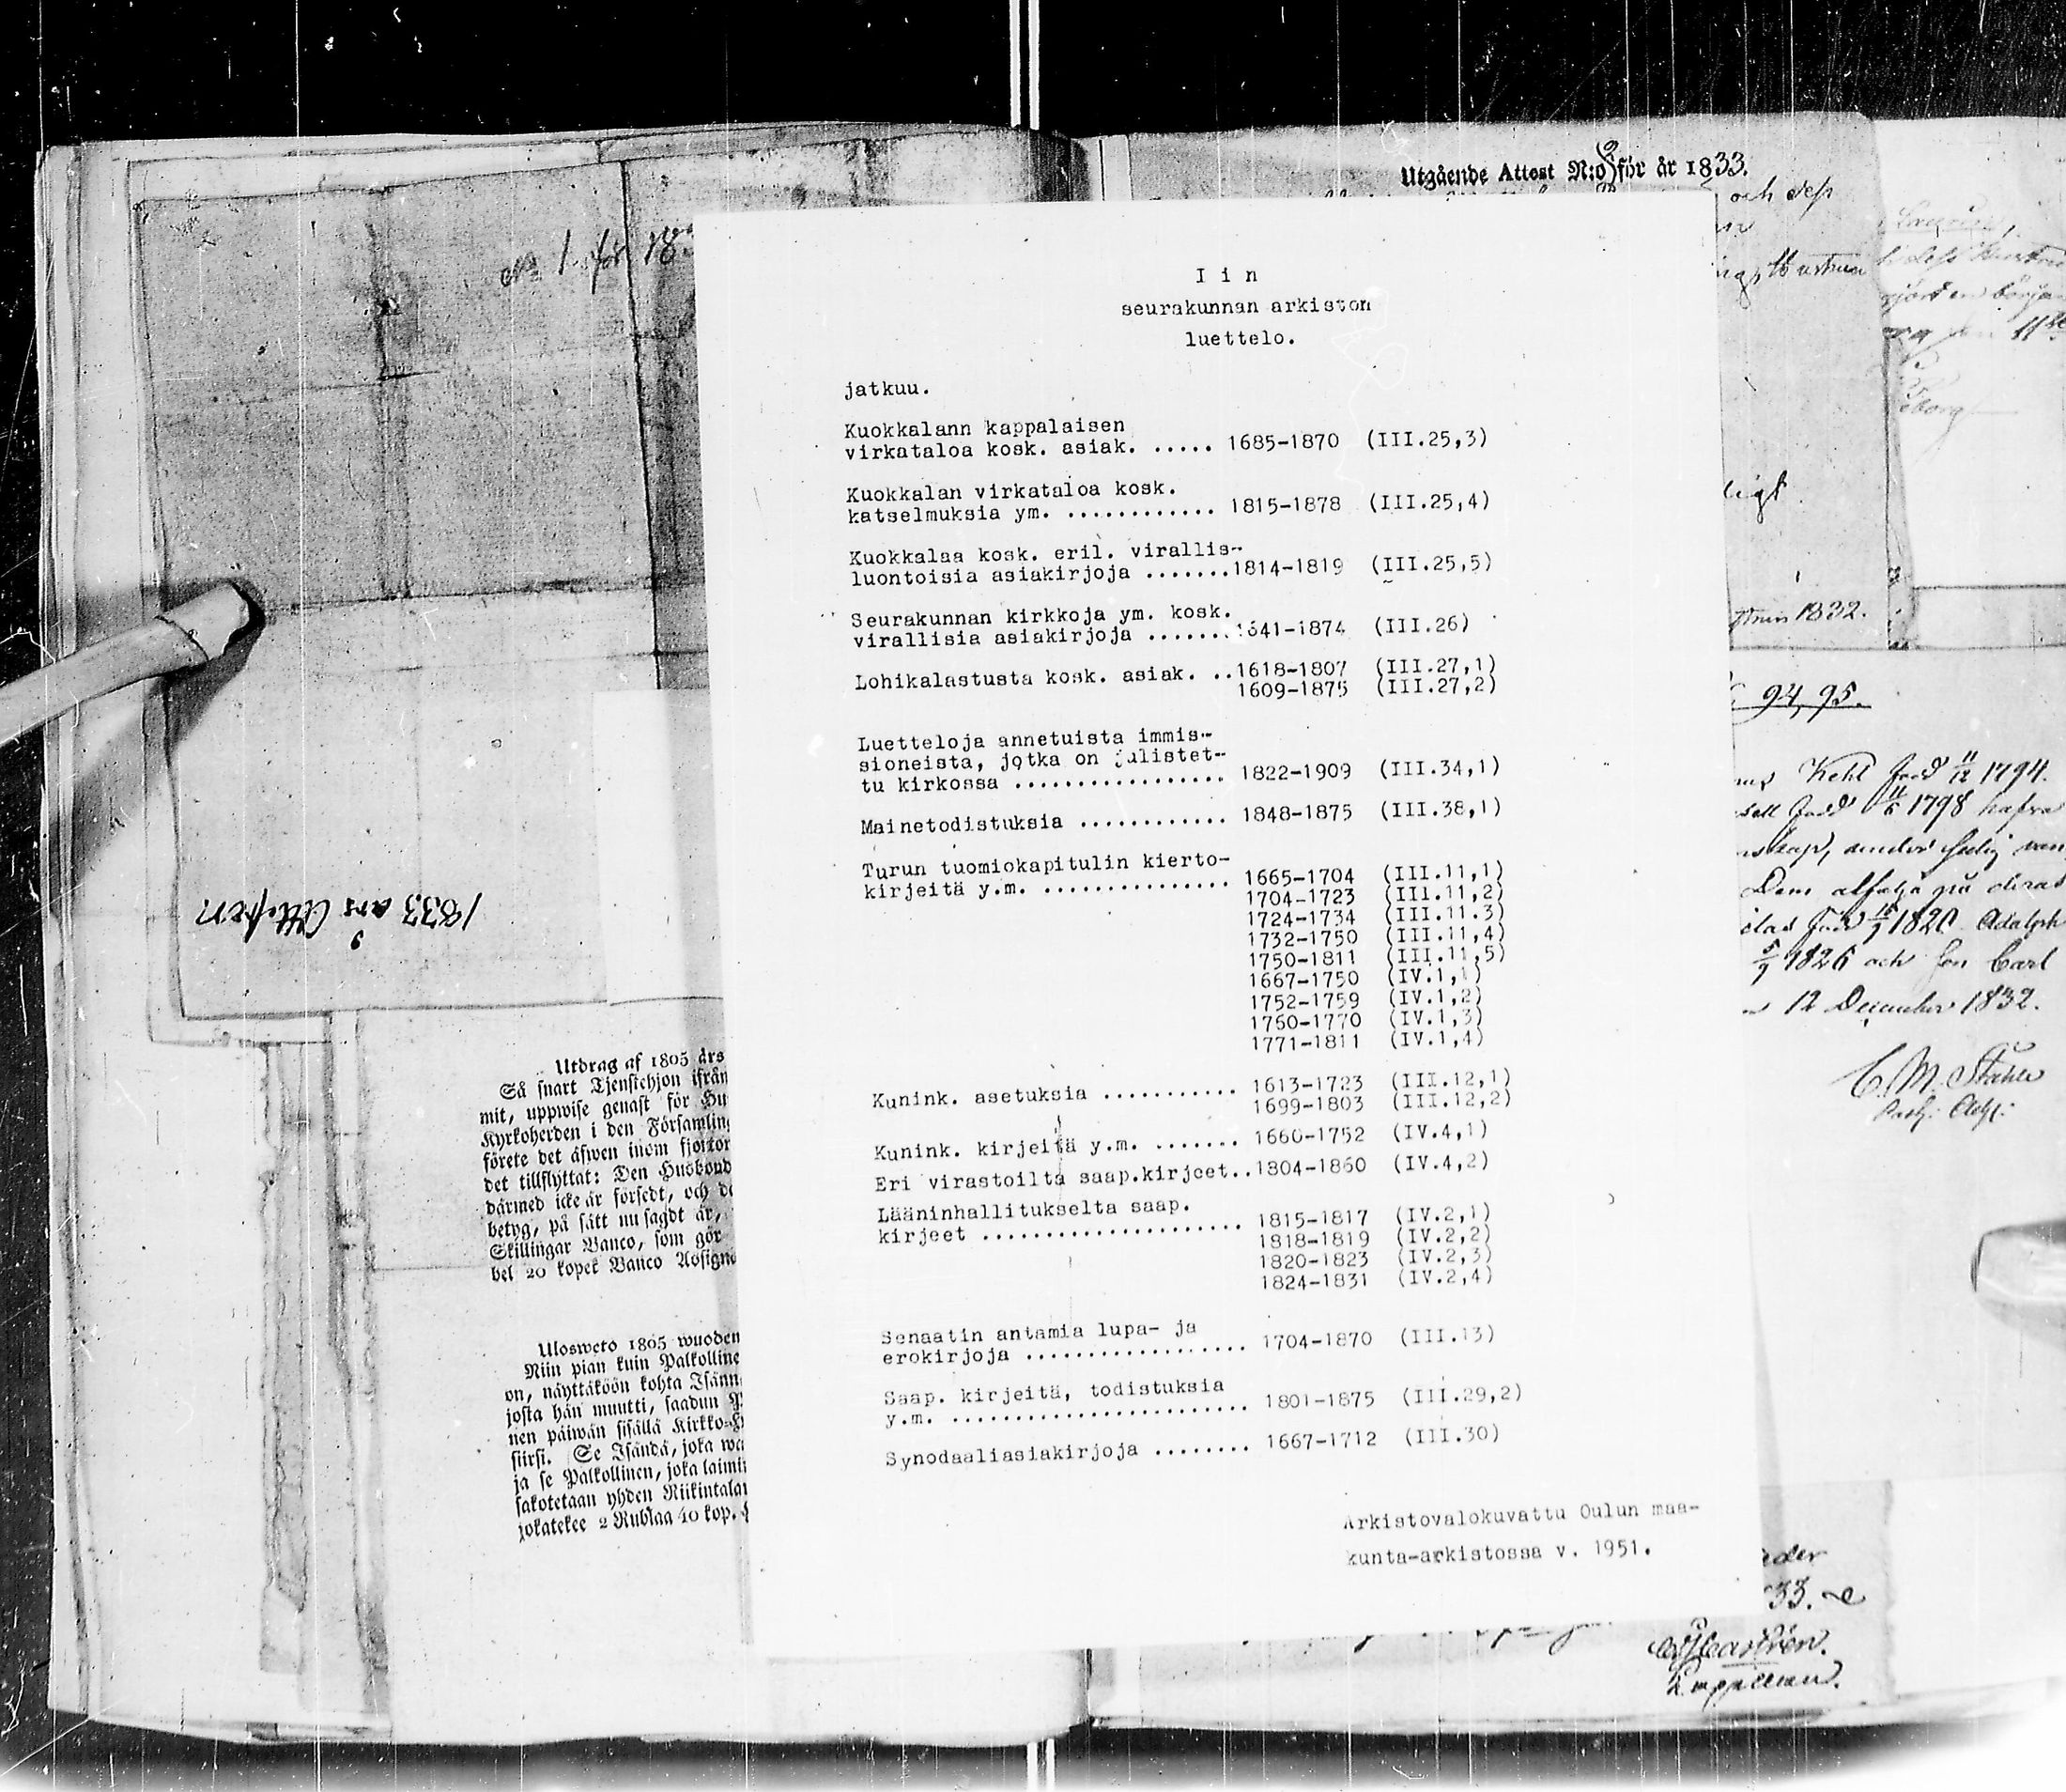 No 1. för 18
1833 års Attester
Utdrag af 1805 års
Så snart Tjenstehjon ifrån
mit, uppwise genast för Hu
Kyrkoherden i den Församling
förete det äfwen inom fjorton
det tillflyttat: Den Husbond
därmed icke är försedt, och de
betyg, på sätt nu sagdt är,
Skillingar Banco, som gör
bel 20 kopek Banco Assigna
Ulosweto 1805 wuoden
Niin pian kuin Palkolline
on, näyttäköön kohta Isänn
josta hän muutti, saadun
nen päiwän sisällä Kirkko-H
siirsi. Se Isändä, joka wa
ja se Palkollinen, joka laimi
sakotetaan yhden Riikintalar
jokatekee 2 Rublaa 40 kop.
Utgående Attest N:o 9) för år 1833.
och dess
I i n
seurakunnan arkiston
luettelo.
jatkuu.
Kuokkalann kappalaisen
virkataloa kosk. asiak. ..... 1685-1870 (III.25,3)
Kuokkalan virkataloa kosk.
katselmuksia ym. ............ 1815-1878 (III.25,4)
Kuokkalaa kosk. eril. virallis-
luontoisia asiakirjoja .......1814-1819 (III.25,5)
Seurakunnan kirkkoja ym. kosk.
virallisia asiakirjoja .......1641-1874 (III.26)
Lohikalastusta kosk. asiak. ..1618-1807 (III.27,1)
1609-1875 (III.27,2)
Luetteloja annetuista immis-
sioneista, jotka on julistet-
tu kirkossa ................. 1822-1909 (III.34,1)
Mainetodistuksia ............ 1848-1875 (III.38,1)
Turun tuomiokapitulin kierto-
kirjeitä y.m. ............... 1665-1704 (III.11,1)
1704-1723 (III.11,2)
1724-1734 (III.11.3)
1732-1750 (III.11,4)
1750-1811 (III.11,5)
1667-1750 (IV.1,1)
1752-1759 (IV.1,2)
1760-1770 (IV.1,3)
1771-1811 (IV.1,4)
Kunink. asetuksia ........... 1613-1723 (III.12,1)
1699-1803 (III.12,2)
Kunink. kirjeitä y.m. ....... 1660-1752 (IV.4,1)
Eri virastoilta saap.kirjeet..1804-1860 (IV.4,2)
Lääninhallitukselta saap.
kirjeet ..................... 1815-1817 (IV.2,1)
1818-1819 (IV.2,2)
1820-1823 (IV.2,3)
1824-1831 (IV.2,4)
Senaatin antamia lupa- ja
erokirjoja .................. 1704-1870 (III.13)
Saap. kirjeitä, todistuksia
y.m. ........................ 1801-1875 (III.29,2)
Synodaaliasiakirjoja ........ 1667-1712 (III.30)
Arkistovalokuvattu Oulun maa-
kunta-arkistossa v. 1951.
ligt.
1832.
94, 95.
född 11/12 1794.
född 11/6 1798 hafva
Dem
1820 Adolph
5/9 1826 och son Carl
12 December 1832.
C. M. Ståhle
33.
Castrén.
Kappellan.